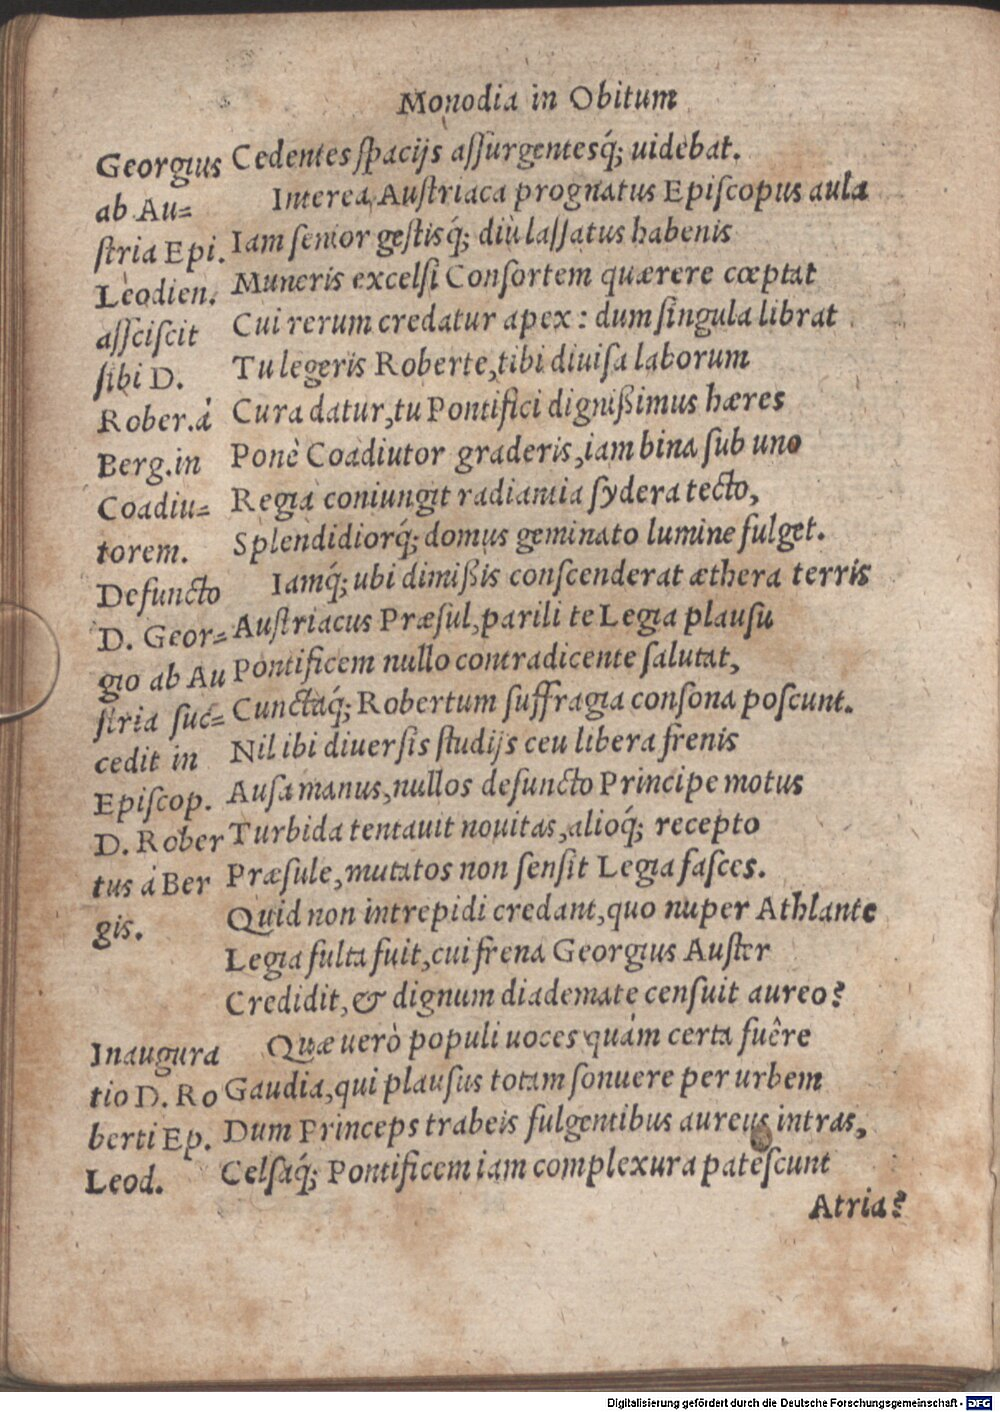 Monodia in Obitum
Georgius
ab Au=
ſtria Epi.
Leodien.
aſſciſcit
ſibi D.
Rober. á
Berg. in
Coadiu=
torem.
Defuncto
D. Geor=
gio ab Au
ſtria ſuc=
cedit in
Epiſcop.
D. Rober
tus á Ber
gis.
Inaugura
tio D. Ro
berti Ep.
Leod.
Cedentes ſpacijs aſſurgentesq́; uidebat.
Interea Auſtriaca prognatus Epiſcopus aula
Iam ſenior geſtisq́; diù laſſatus habenis
Muneris excelſi Conſortem quærere cœptat
Cui rerum credatur apex: dum ſingula librat
Tu legeris Roberte, tibi diuiſa laborum
Cura datur, tu Pontifici dignißimus hæres
Ponè Coadiutor graderis, iam bina ſub uno
Regia coniungit radiantia ſydera tecto,
Splendidiorq́; domus geminato lumine fulget.
Iamq́; ubi dimißis conſcenderat æthera terris
Auſtriacus Præſul, parili te Legia plauſu
Pontificem nullo contradicente ſalutat,
Cunctaq́; Robertum ſuffragia conſona poſcunt.
Nil ibi diuerſis ſtudijs ceu libera frenis
Auſa manus, nullos defuncto Principe motus
Turbida tentauit nouitas, alioq́; recepto
Præſule, mutatos non ſenſit Legia faſces.
Quid non intrepidi credant, quo nuper Athlante
Legia fulta fuit, cui frena Georgius Auſter
Credidit, & dignum diademate cenſuit aureo?
Quæ uerò populi uoces quám certa fuêre
Gaudia, qui plauſus totam ſonuere per urbem
Dum Princeps trabeis fulgentibus aureus intras,
Celſaq́; Pontificem iam complexura pateſcunt
Atria?
Digitalisierung gefördert durch die Deutsche Forschungsgemeinschaft - DFG